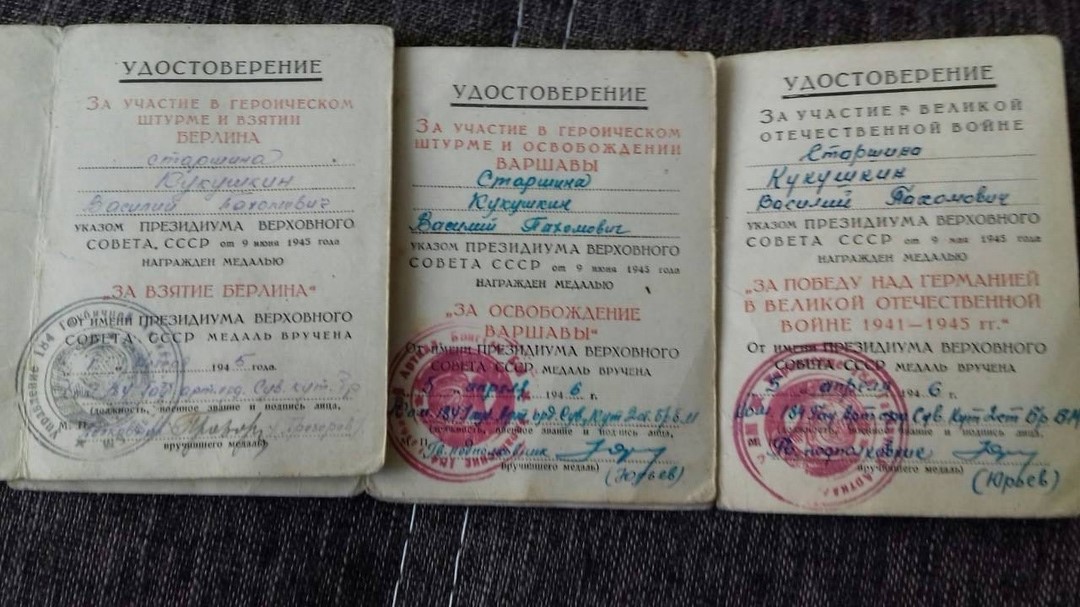 УДОСТОВЕРЕНИЕ
ЗА УЧАСТИЕ В ГЕРОИЧЕСКОМ
ШТУРМЕ И ВЗЯТИИ
БЕРЛИНА
старшина
Кукушкин
Василий Пахомович
УКАЗОМ ПРЕЗИДИУМА ВЕРХОВНОГО
СОВЕТА, СССР от 9 июня 1945 года
НАГРАЖДЕН МЕДАЛЬЮ
„ЗА ВЗЯТИЕ БЕРЛИНА“
От имени ПРЕЗИДИУМА ВЕРХОВНОГО
СОВЕТА СССР МЕДАЛЬ ВРУЧЕНА
1945 года.
(должность, военное звание и подпись лица,
М. П.
вручившего медаль)
УДОСТОВЕРЕНИЕ
ЗА УЧАСТИЕ В ГЕРОИЧЕСКОМ
ШТУРМЕ И ОСВОБОЖДЕНИИ
ВАРШАВЫ
Старшина
Кукушкин
Василий Пахомович
УКАЗОМ ПРЕЗИДИУМА ВЕРХОВНОГО
СОВЕТА СССР от 9 июня 1945 года
НАГРАЖДЕН МЕДАЛЬЮ
„ЗА ОСВОБОЖДЕНИЕ
ВАРШАВЫ“
От имени ПРЕЗИДИУМА ВЕРХОВНОГО
СОВЕТА СССР МЕДАЛЬ ВРУЧЕНА
„5“ апреля 1946 г.
Ком. 184 Гау. Арт. орд. Сув. Кут. 2 ст. Бр.
(должность, военное звание и подпись лица,
Гв. подполковник
вручившего медаль)
(Юрьев)
УДОСТОВЕРЕНИЕ
ЗА УЧАСТИЕ В ВЕЛИКОЙ
ОТЕЧЕСТВЕННОЙ ВОЙНЕ
Старшина
Кукушкин
Василий Пахомович
УКАЗОМ ПРЕЗИДИУМА ВЕРХОВНОГО
СОВЕТА СССР от 9 мая 1945 года
НАГРАЖДЕН МЕДАЛЬЮ
„ЗА ПОБЕДУ НАД ГЕРМАНИЕЙ
В ВЕЛИКОЙ ОТЕЧЕСТВЕННОЙ
ВОЙНЕ 1941—1945 гг.“
От имени ПРЕЗИДИУМА ВЕРХОВНОГО
СОВЕТА СССР МЕДАЛЬ ВРУЧЕНА
„5“ апреля 1946 г.
Ком. 184 Гау Арт орд Сув. Кут 2 ст Бр
(должность, военное звание и подпись лица,
Гв. подполковник
вручившего медаль)
(Юрьев)